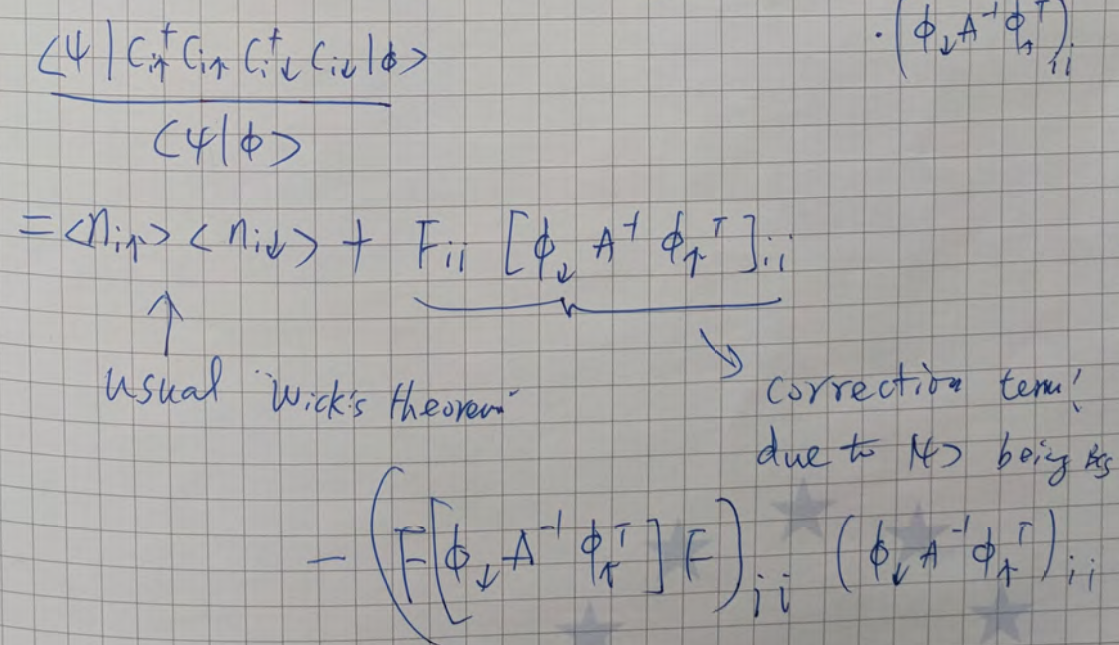 · (ϕ↓ A⁻¹ ϕ↑ᵀ)ᵢᵢ
<ψ| C†ᵢ↑ Cᵢ↑ C†ᵢ↓ Cᵢ↓ |ϕ>
<ψ|ϕ>
= <nᵢ↑> <nᵢ↓> + Fᵢᵢ [ϕ↓ A⁻¹ ϕ↑ᵀ]ᵢᵢ
usual Wick's theorem
correction term!
due to |ψ> being BCS
− (F[ϕ↓ A⁻¹ ϕ↑ᵀ] F)ᵢᵢ (ϕ↓ A⁻¹ ϕ↑ᵀ)ᵢᵢ